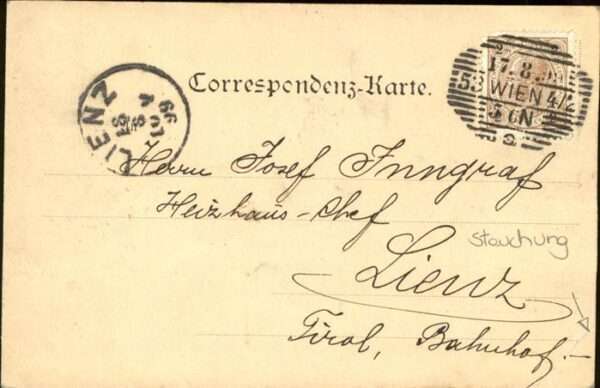 Correspondenz-Karte.
17. 8.
53 WIEN 4/2
5 6N
LIENZ
99
Herrn Josef Inngraf
Heizhaus-Chef
Stauchung
Lienz
Tirol, Bahnhof.